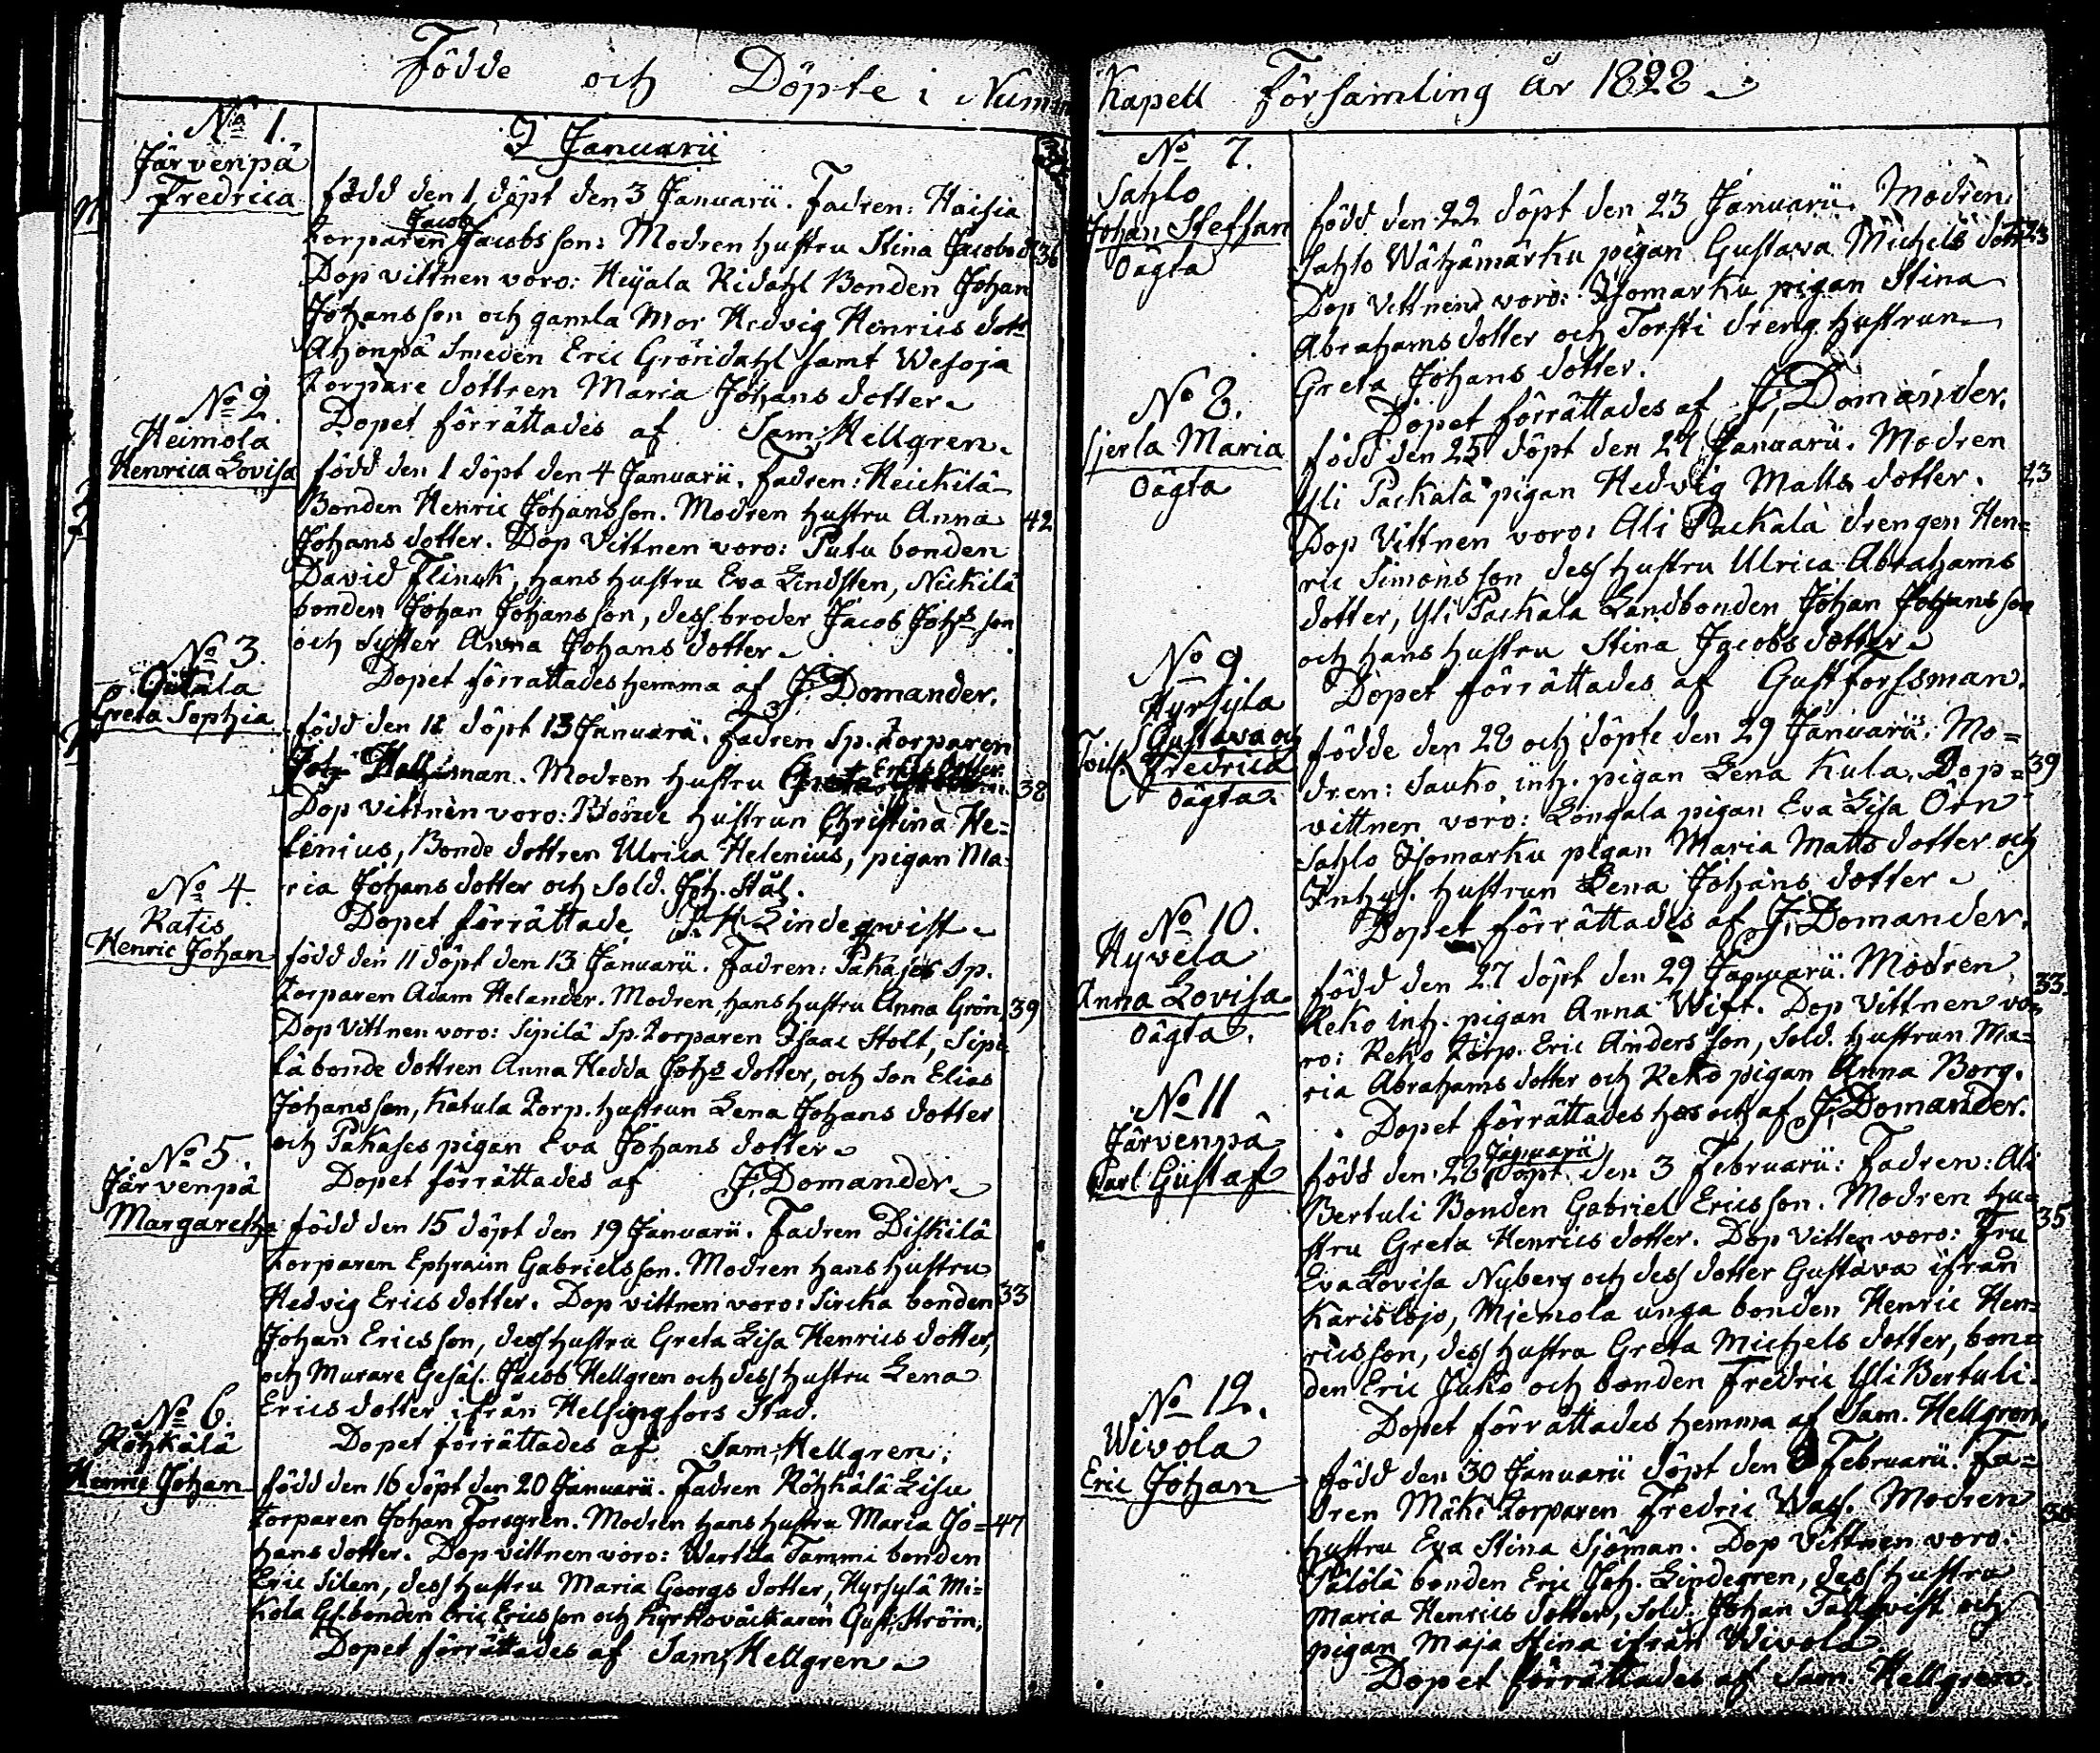 Födde och Döpte i Num
No 1.
Järvenpä
Fredrica
I Januarii
född den 1, döpt den 3 Januarii. Fadren: Haisia
Jacob
Torparen Jacobsson: Modren hustru Stina Jacobsd 36
Dop vittnen voro: Heijala Ridahl Bonden Johan
Johansson och gamla Mor Hedvig Henrics dottr
Ahonpä Smeden Eric Gröndahl samt Wesoja
Torpare dottren Maria Johans dotter
Dopet förrättades af Sam: Hellgren.
No 2.
Heimola
Henrica Lovisa
född den 1 döpt den 4 Januarii. fadren: Heickilä
Bonden Henric Johansson. Modren hustru Anna 42
Johans dotter. Dop vittnen voro: Putu bonden
David Flinck, hans hustru Eva Lindsten, Nickilä
bonden Johan Johansson, dess broder Jacob Johs son
och Syster Anna Johans dotter
Dopet förrättades hemma af J. Domander.
No 3.
Greta Sophia
född den 12 döpt 13 Januarii. Fadren Sp. Torparen
Joh Modren hustru Erics dotter 38
Dop vittnen voro: Bonde hustrun Christina He=
lenius, Bonde dottren Ulrica Helenius, pigan Ma=
ria Johans dotter och Sold. Joh. Stål.
Dopet förrättade J. H. Lindeqwist
No 4.
Ratis
Henric Johan
född den 11 döpt den 13 Januarii. Fadren: Pakajes Sp.
Torparen Adam Helander. Modren hans hustru Anna Grön, 39
Dop vittnen voro: Sipilä Sp. Torparen Isaac Stolt, Sipi
lä bonde dottren Anna Hedda Johs dotter, och Son Elias
Johansson, Katula Torp. hustrun Lena Johans dotter
och Pakases pigan Eva Johans dotter
Dopet förrättades af J. Domander
No 5.
Järvenpä
Margaretha
född den 15 döpt den 19 Januarii. Fadren Diskilä
Torparen Ephraim Gabrielsson. Modren hans hustru
Hedvig Erics dotter. Dop vittnen voro: Sircka bonden 33
Johan Ericsson, dess hustru Greta Lisa Henrics dotter,
och Murare Gesäl. Jacob Hellgren och dess hustru Lena
Erics dotter ifrån Helsingfors Stad.
Dopet förrättades af Sam: Hellgren.
No 6.
Röhkälä
Henric Johan
född den 16 döpt den 20 Januarii. Fadren Röhkälä Lisu
Torparen Johan Forsgren. Modren hans hustru Maria Jo= 47
hans dotter. Dop vittnen voro: Wartila Tammi bonden
Eric Silen, dess hustru Maria Georgs dotter, Hyrsylä Mi=
kola Gl. bonden Eric Ericsson och Kyrkoväcktaren Gust. Ström,
Dopet förrättades af Sam: Hellgren
Kapell Församling år 1828
No 7.
Sahlo
Johan Steffan
Oägta
född den 22 döpt den 23 Januarii. Modren:
Sahlo Wähämärku pigan Gustava Michels dottr 23
Dop vittnen voro: Isomarku pigan Stina
Abrahams dotter och Torsti dreng hustrun
Greta Johans dotter.
Dopet förrättades af J. Domander.
No 8.
Sjerla Maria
Oägta
född den 25 döpt den 27 Januarii. Modren
Yli Packala pigan Hedvig Matts dotter. 23
Dop Vittnen voro: Ali Packala drengen Hen=
ric Simonsson dess hustru Ulrica Abrahams
dotter, Yli Packala Landbonden Johan Johansson
och hans hustru Stina Jacobs dotter
Dopet förrättades af Gust Forssman.
No 9
Hyrsyla
Gustava och
Fredrica
Oägta
födde den 28 och döpte den 29 Januarii. Mo=
dren: Sauko inh. pigan Lena Kula. Dop= 39
vittnen voro: Längala pigan Eva Lisa Örn
Sahlo Isomarku pigan Maria Matts dotter och
Inhys. hustrun Lena Johans dotter
Dopet förrättades af J. Domander.
No 10.
Hyvela
Anna Lovisa
Oägta.
född den 27 döpt den 29 Januarii. Modren 33.
Reko inh. pigan Anna Wift. Dop Vittnen vo=
ro: Reko Torp. Eric Andersson, Sold. hustrun Ma=
ria Abrahams dotter och Reko pigan Anna Borg.
Dopet förrättades hos och af J. Domander.
No 11
Järvenpä
Carl Gustaf
Januarii
född den 26 döpt den 3 Februarii: Fadren: Ali
Bertuli Bonden Gabriel Ericsson. Modren hu= 35
stru Greta Henrics dotter. Dop vitten voro: Fru
Eva Lovisa Nyberg och dess dotter Gustava ifrån
Karislojo, Mjemola unga bonden Henric Hen=
ricsson, dess hustru Greta Michels dotter, bon=
den Eric Juko och bonden Fredric Yli Bertuli.
Dopet förrättades hemma af Sam. Hellgren.
No 12.
Wivola
Eric Johan
född den 30 Januarii döpt den 3 Februarii. Fa=
dren Mäki Torparen Fredric Wass. Modren
hustru Eva Stina Sjöman. Dop vittnen voro:
Pälölä bonden Eric Joh. Lindegren, dess hustru
Maria Henrics dotter, Sold. Johan Tallqvist och
pigan Maja Stina ifrån Wivola.
Dopet förrättades af Sam. Hellgren.